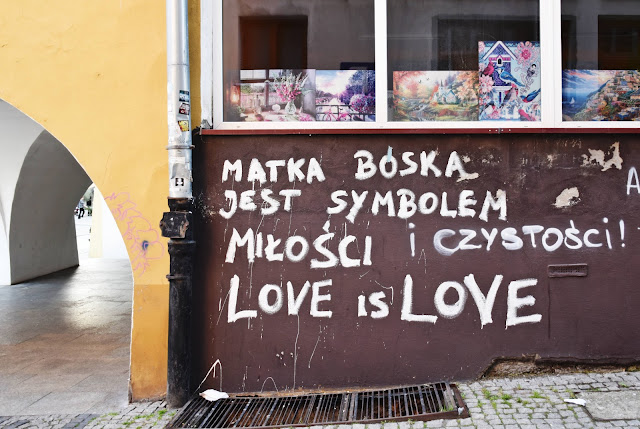 MATKA BOSKA
JEST SYMBOLEM
MIŁOŚCI i CZYSTOŚCI!
LOVE is LOVE
A